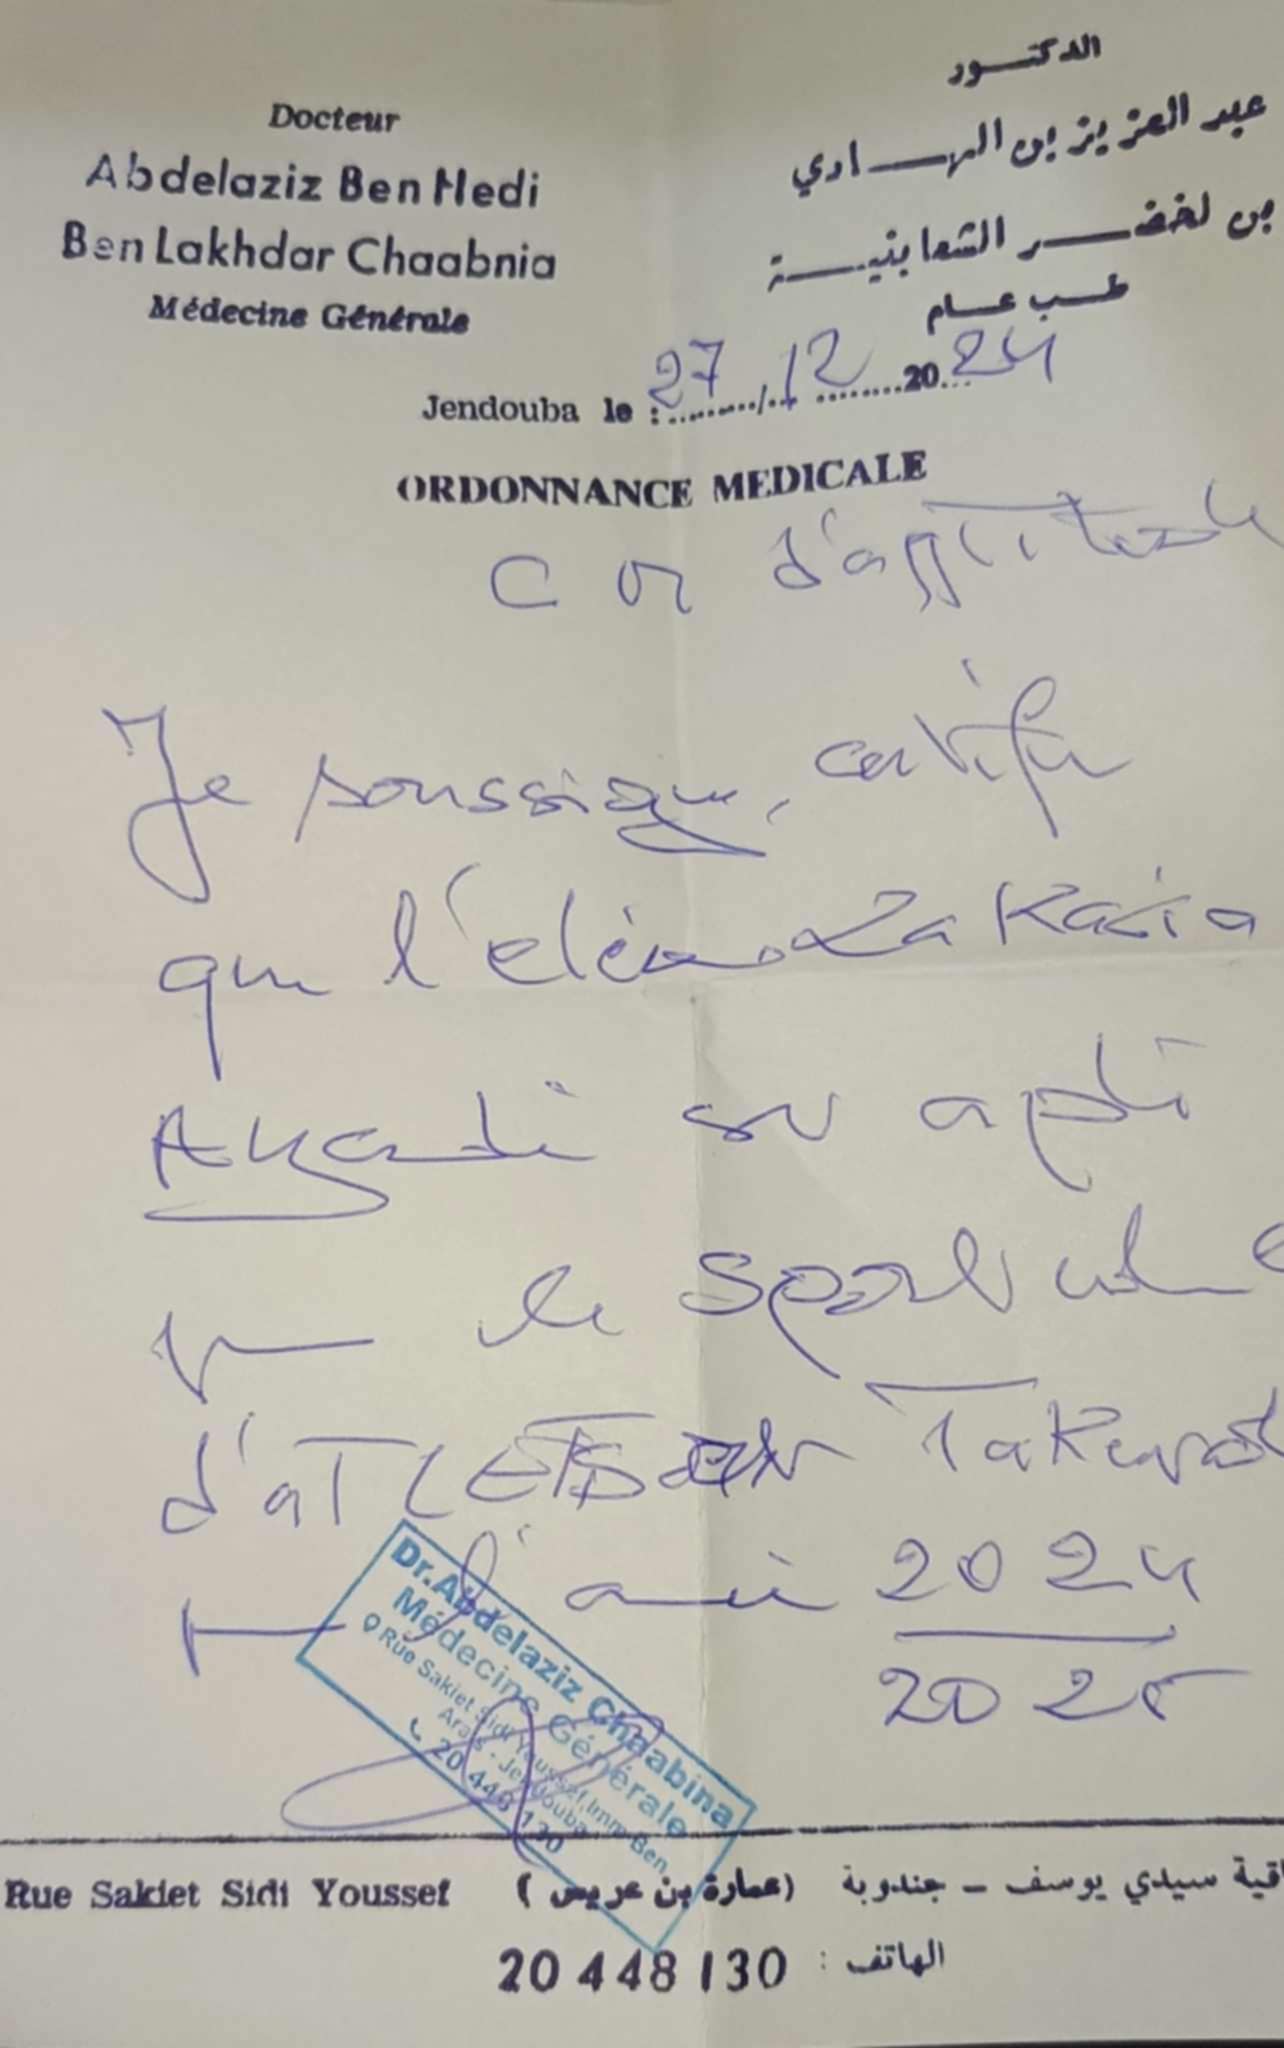 Docteur
Abdelaziz Ben Hedi
Ben Lakhdar Chaabnia
Médecine Générale
الدكتور
عبد العزيز بن الهادي
بن لخضر الشعابنية
طب عام
Jendouba le : 27/12 2024
ORDONNANCE MEDICALE
d'aptitude
Je soussigné, certifie
que l'elève Zakaria
Ayadi est apte
pour le sport
d'atl
pour l'année 2024
2025
Dr. Abdelaziz Chaabina
Médecine Générale
Rue Sakiet Sidi Youssef, Imm Ben
Arais - Jendouba
20 448 130
Rue Sakiet Sidi Youssef (عمارة بن عريس) اقية سيدي يوسف - جندوبة
الهاتف : 20 448 130